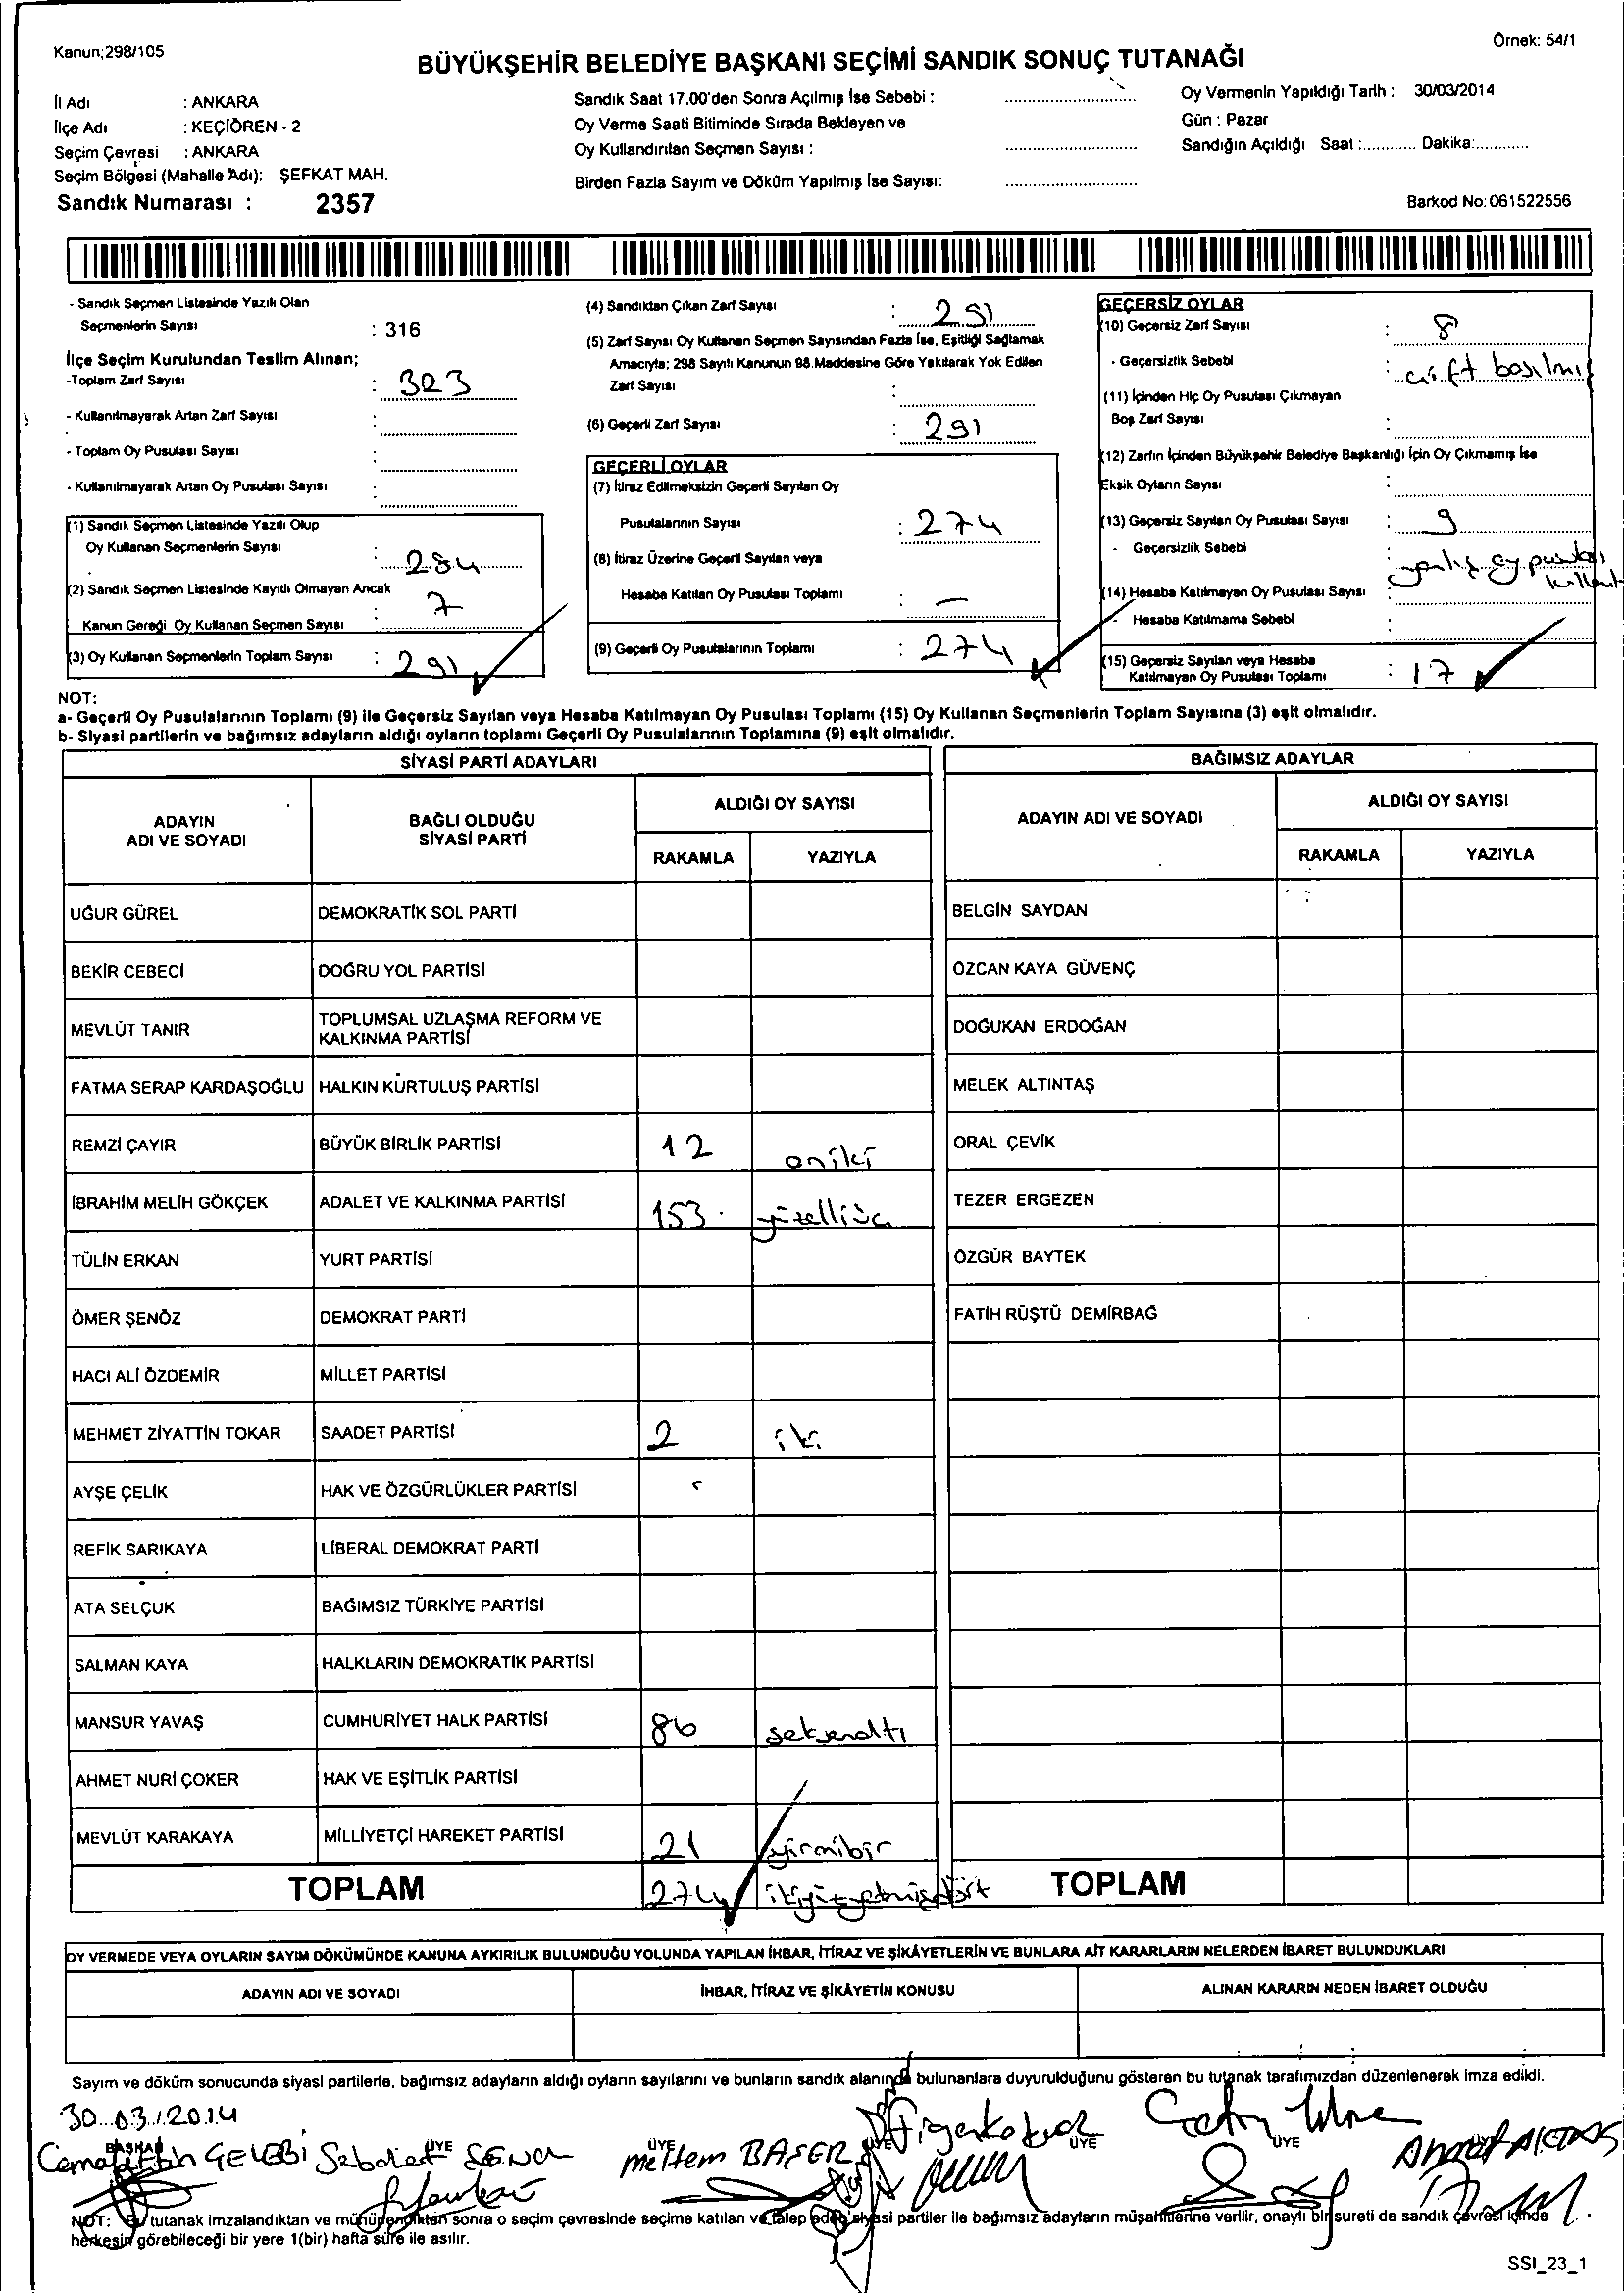 Kanun;298/105
Örnek: 54/1
BÜYÜKŞEHİR BELEDİYE BAŞKANI SEÇİMİ SANDIK SONUÇ TUTANAĞI
İl Adı : ANKARA
İlçe Adı : KEÇİÖREN - 2
Seçim Çevresi : ANKARA
Seçim Bölgesi (Mahalle Adı): ŞEFKAT MAH.
Sandık Numarası : 2357
Sandık Saat 17.00'den Sonra Açılmış İse Sebebi :
Oy Verme Saati Bitiminde Sırada Bekleyen ve
Oy Kullandırılan Seçmen Sayısı :
Birden Fazla Sayım ve Döküm Yapılmış İse Sayısı:
Oy Vermenin Yapıldığı Tarih : 30/03/2014
Gün : Pazar
Sandığın Açıldığı Saat :............ Dakika:............
Barkod No: 061522556
- Sandık Seçmen Listesinde Yazılı Olan
Seçmenlerin Sayısı : 316
İlçe Seçim Kurulundan Teslim Alınan;
-Toplam Zarf Sayısı : 303
- Kullanılmayarak Artan Zarf Sayısı :
- Toplam Oy Pusulası Sayısı :
- Kullanılmayarak Artan Oy Pusulası Sayısı :
(1) Sandık Seçmen Listesinde Yazılı Olup
Oy Kullanan Seçmenlerin Sayısı : 284
(2) Sandık Seçmen Listesinde Kayıtlı Olmayan Ancak
Kanun Gereği Oy Kullanan Seçmen Sayısı : 7
(3) Oy Kullanan Seçmenlerin Toplam Sayısı : 291
(4) Sandıktan Çıkan Zarf Sayısı : 291
(5) Zarf Sayısı Oy Kullanan Seçmen Sayısından Fazla İse, Eşitliği Sağlamak
Amacıyla; 298 Sayılı Kanunun 98.Maddesine Göre Yakılarak Yok Edilen
Zarf Sayısı :
(6) Geçerli Zarf Sayısı : 291
GEÇERLİ OYLAR
(7) İtiraz Edilmeksizin Geçerli Sayılan Oy
Pusulalarının Sayısı : 274
(8) İtiraz Üzerine Geçerli Sayılan veya
Hesaba Katılan Oy Pusulası Toplamı : —
(9) Geçerli Oy Pusulalarının Toplamı : 274
GEÇERSİZ OYLAR
(10) Geçersiz Zarf Sayısı : 8
- Geçersizlik Sebebi : çift basılmış
(11) İçinden Hiç Oy Pusulası Çıkmayan
Boş Zarf Sayısı :
(12) Zarfın İçinden Büyükşehir Belediye Başkanlığı İçin Oy Çıkmamış İse
Eksik Oyların Sayısı :
(13) Geçersiz Sayılan Oy Pusulası Sayısı : 9
- Geçersizlik Sebebi : yanlış oy pusulası
(14) Hesaba Katılmayan Oy Pusulası Sayısı :
- Hesaba Katılmama Sebebi :
(15) Geçersiz Sayılan veya Hesaba
Katılmayan Oy Pusulası Toplamı : 17
NOT:
a- Geçerli Oy Pusulalarının Toplamı (9) ile Geçersiz Sayılan veya Hesaba Katılmayan Oy Pusulası Toplamı (15) Oy Kullanan Seçmenlerin Toplam Sayısına (3) eşit olmalıdır.
b- Siyasi partilerin ve bağımsız adayların aldığı oyların toplamı Geçerli Oy Pusulalarının Toplamına (9) eşit olmalıdır.
SİYASİ PARTİ ADAYLARI
ADAYIN ADI VE SOYADI
BAĞLI OLDUĞU SİYASİ PARTİ
ALDIĞI OY SAYISI
RAKAMLA YAZIYLA
UĞUR GÜREL DEMOKRATİK SOL PARTİ
BEKİR CEBECİ DOĞRU YOL PARTİSİ
MEVLÜT TANIR TOPLUMSAL UZLAŞMA REFORM VE KALKINMA PARTİSİ
FATMA SERAP KARDAŞOĞLU HALKIN KURTULUŞ PARTİSİ
REMZİ ÇAYIR BÜYÜK BİRLİK PARTİSİ 12 oniki
İBRAHİM MELİH GÖKÇEK ADALET VE KALKINMA PARTİSİ 153 yüzelliüç
TÜLİN ERKAN YURT PARTİSİ
ÖMER ŞENÖZ DEMOKRAT PARTİ
HACI ALİ ÖZDEMİR MİLLET PARTİSİ
MEHMET ZİYATTİN TOKAR SAADET PARTİSİ 2 iki
AYŞE ÇELİK HAK VE ÖZGÜRLÜKLER PARTİSİ
REFİK SARIKAYA LİBERAL DEMOKRAT PARTİ
ATA SELÇUK BAĞIMSIZ TÜRKİYE PARTİSİ
SALMAN KAYA HALKLARIN DEMOKRATİK PARTİSİ
MANSUR YAVAŞ CUMHURİYET HALK PARTİSİ 86 seksenaltı
AHMET NURİ ÇOKER HAK VE EŞİTLİK PARTİSİ
MEVLÜT KARAKAYA MİLLİYETÇİ HAREKET PARTİSİ 21 yirmibir
TOPLAM 274 ikiyüzyetmişdört
BAĞIMSIZ ADAYLAR
ADAYIN ADI VE SOYADI
ALDIĞI OY SAYISI
RAKAMLA YAZIYLA
BELGİN SAYDAN
ÖZCAN KAYA GÜVENÇ
DOĞUKAN ERDOĞAN
MELEK ALTINTAŞ
ORAL ÇEVİK
TEZER ERGEZEN
ÖZGÜR BAYTEK
FATİH RÜŞTÜ DEMİRBAĞ
TOPLAM
OY VERMEDE VEYA OYLARIN SAYIM DÖKÜMÜNDE KANUNA AYKIRILIK BULUNDUĞU YOLUNDA YAPILAN İHBAR, İTİRAZ VE ŞİKÂYETLERİN VE BUNLARA AİT KARARLARIN NELERDEN İBARET BULUNDUKLARI
ADAYIN ADI VE SOYADI
İHBAR, İTİRAZ VE ŞİKÂYETİN KONUSU
ALINAN KARARIN NEDEN İBARET OLDUĞU
Sayım ve döküm sonucunda siyasi partilerle, bağımsız adayların aldığı oyların sayılarını ve bunların sandık alanında bulunanlara duyurulduğunu gösteren bu tutanak tarafımızdan düzenlenerek imza edildi.
30.03.2014
BAŞKAN ÜYE ÜYE ÜYE ÜYE ÜYE
meltem BAŞER Ahmet AKTAŞ
NOT: Bu tutanak imzalandıktan ve mühürlendikten sonra o seçim çevresinde seçime katılan ve talep eden siyasi partiler ile bağımsız adayların müşahitlerine verilir, onaylı bir sureti de sandık çevresi içinde
herkesin görebileceği bir yere 1(bir) hafta süre ile asılır.
SSI_23_1